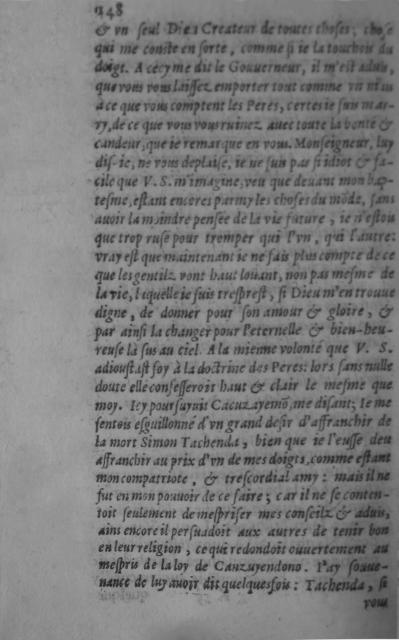 148
& vn seul Dieu Createur de toutes choses, chose
qui me conste en sorte, comme si ie la touchois du
doigt. A cecy me dit le Gouuerneur, il m'est aduis,
que vous vous laissez emporter tout comme vn
à ce que vous comptent les Peres, certes ie suis mar-
ry, de ce que vous vous ruinez auec toute la bonté &
candeur, que ie remarque en vous. Monseigneur, luy
dis-ie, ne vous deplaise, ie ne suis pas si idiot & fa-
cile que V. S. m'imagine, veu que deuant mon bap-
tesme, estant encores parmy les choses du mõde, sans
auoir la moindre pensée de la vie future, ie n'estou
que trop rusé pour tromper qui l'vn, qui l'autre:
vray est que maintenant ie ne fais plus compte de ce
que les gentilz vont haut louant, non pas mesme de
la vie, laquelle ie suis tresprest, si Dieu m'en trouue
digne, de donner pour son amour & gloire, &
par ainsi la changer pour l'eternelle & bien-heu-
reuse là sus au ciel. A la mienne volonté que V. S.
adioustast foy à la doctrine des Peres: lors sans nulle
doute elle confesseroit haut & clair le mesme que
moy. Icy poursuyuit Cacuzayemõ, me disant; Ie me
sentois esguillonné d'vn grand desir d'affranchir de
la mort Simon Tachenda, bien que ie l'eusse deu
affranchir au prix d'vn de mes doigts, comme estant
mon compatriote, & trescordial amy: mais il ne
fut en mon pouuoir de ce faire; car il ne se conten-
toit seulement de mespriser mes conseilz & aduis,
ains encore il persuadoit aux autres de tenir bon
en leur religion, ce qui redondoit ouuertement au
mespris de la loy de Canzuyendono. I'ay souue-
nance de luy auoir dit quelquesfois: Tachenda, si
vous